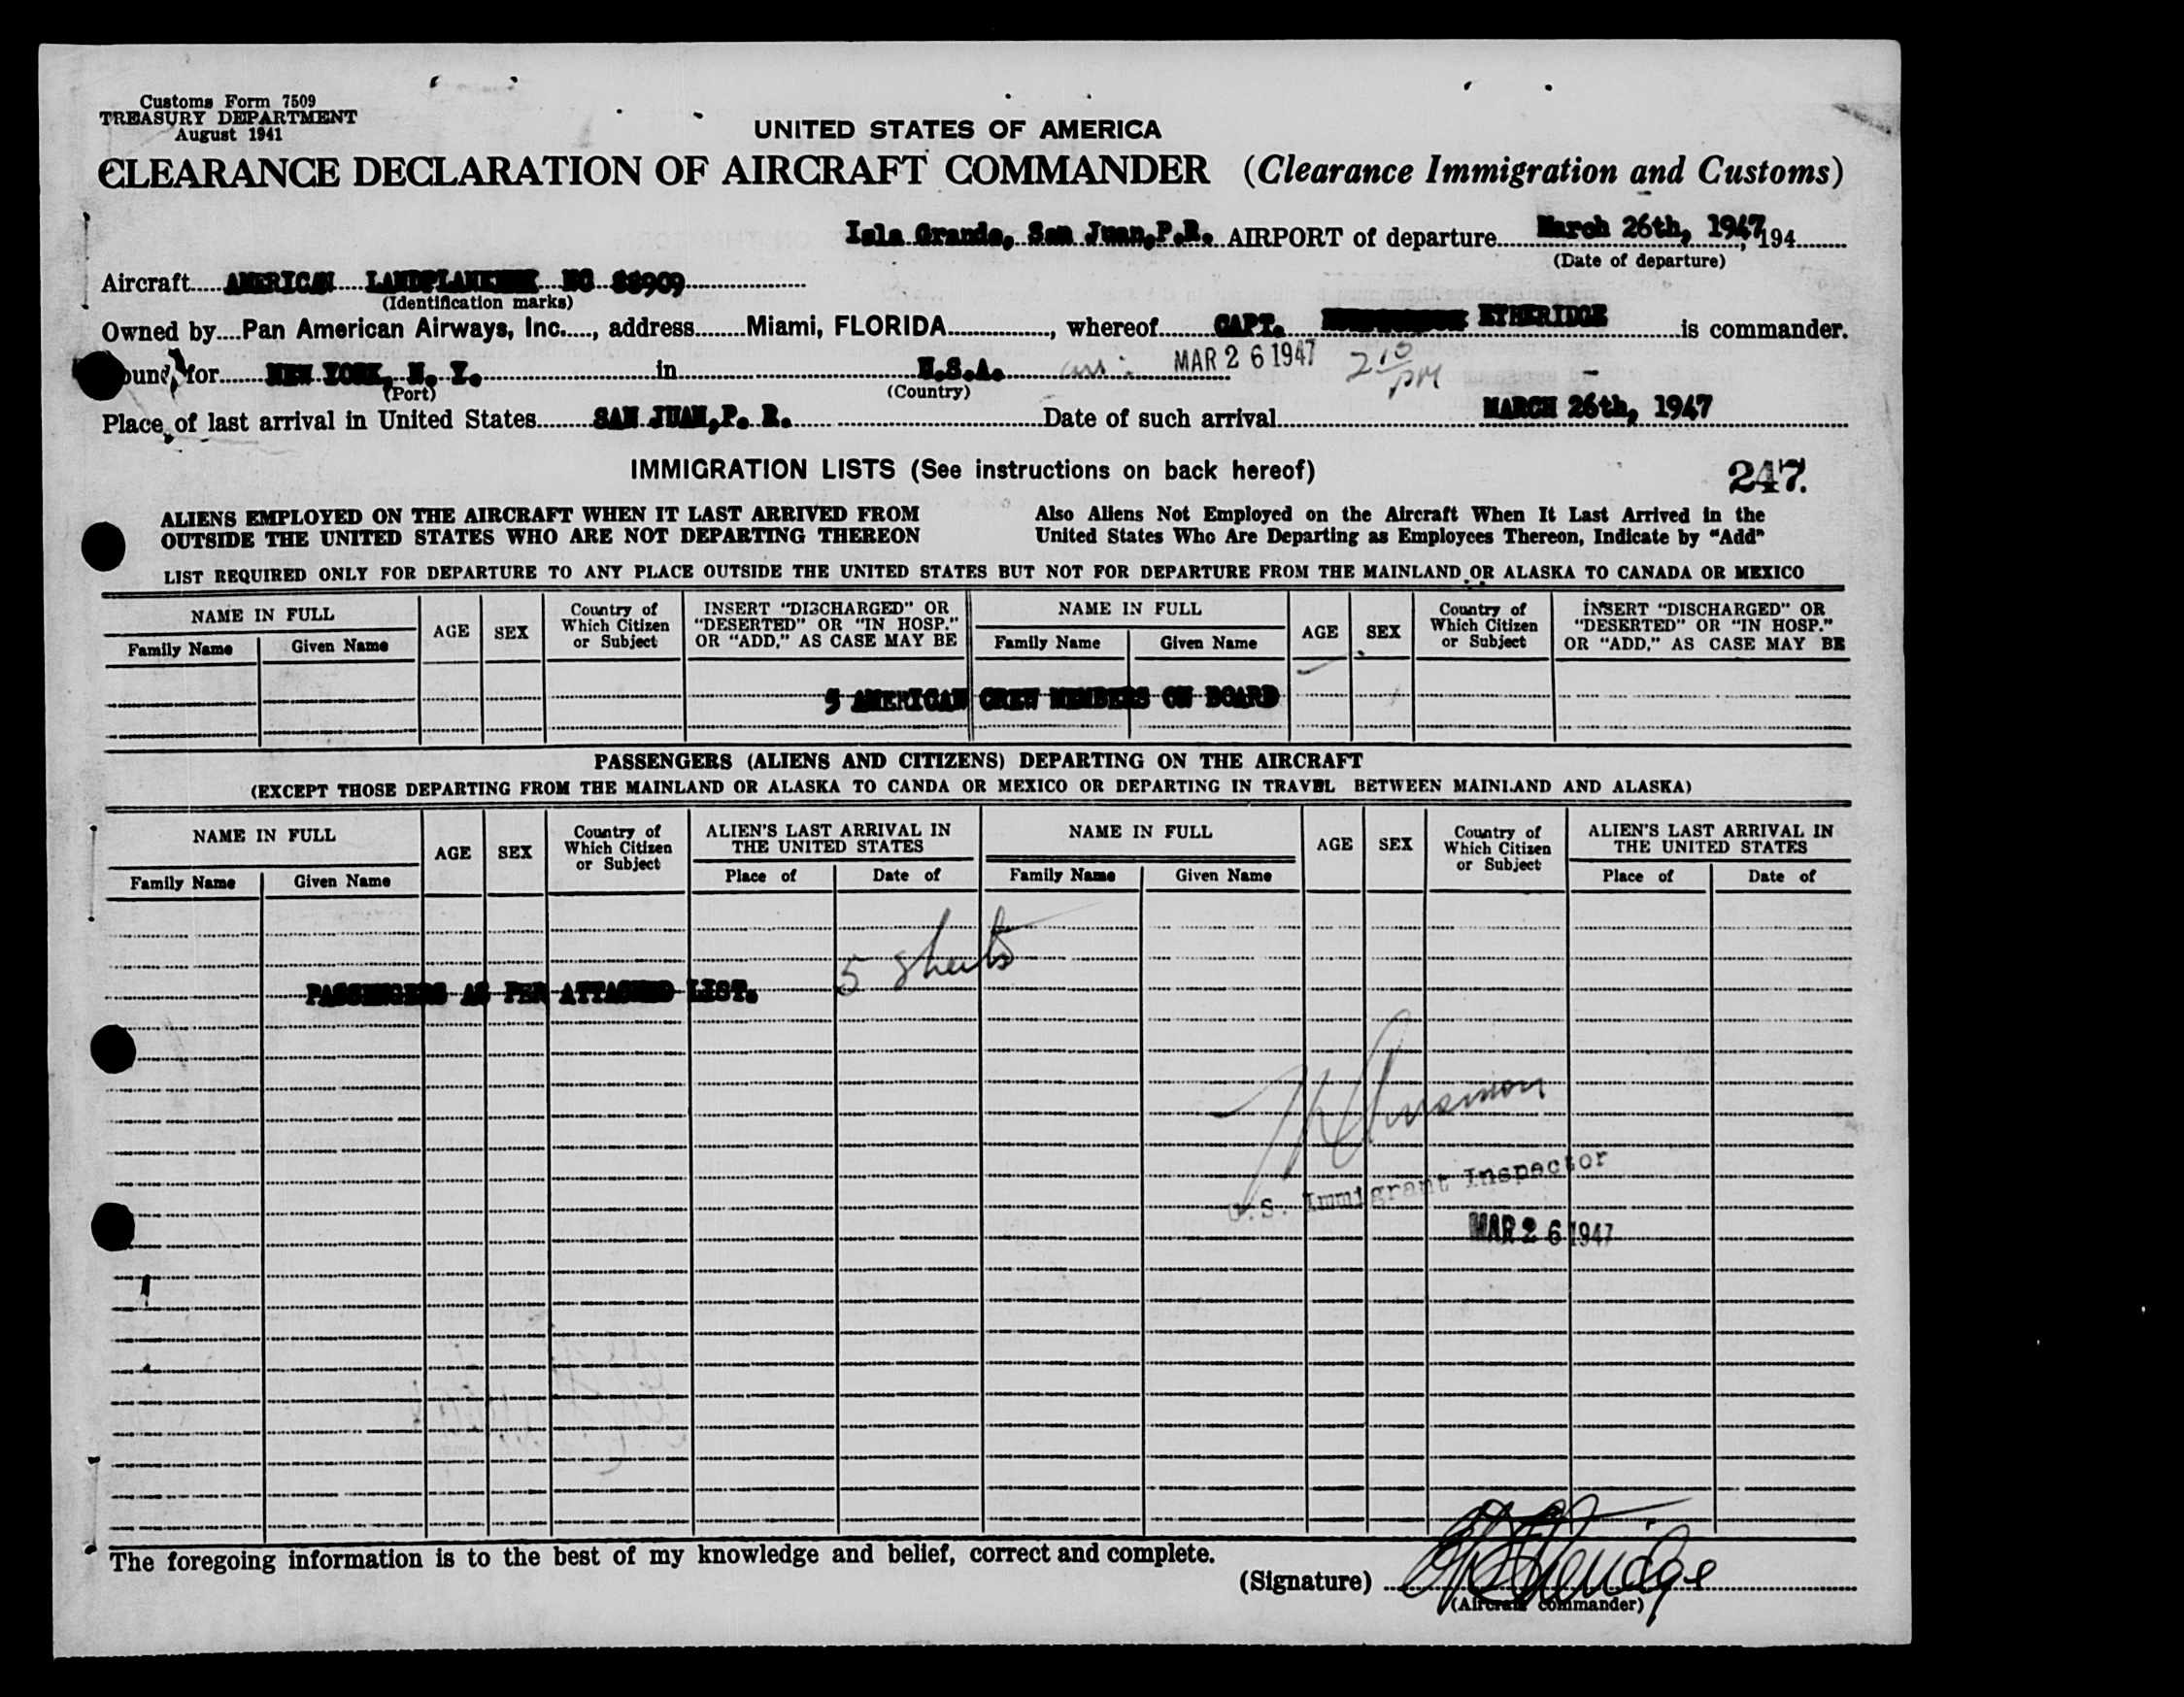 Customs Form 7509
TREASURY DEPARTMENT
August 1941
UNITED STATES OF AMERICA
CLEARANCE DECLARATION OF AIRCRAFT COMMANDER (Clearance Immigration and Customs)
Isla Grande, San Juan,P.R. AIRPORT of departure March 26th, 1947, 194
(Date of departure)
Aircraft AMERICAN NC 88909
(Identification marks)
Owned by Pan American Airways, Inc., address Miami, FLORIDA, whereof CAPT. ETHERIDGE is commander.
for NEW YORK, N. Y. in U.S.A. arr: MAR 26 1947 2 10 PM
(Port) (Country)
Place of last arrival in United States SAN JUAN,P. R. Date of such arrival MARCH 26th, 1947
IMMIGRATION LISTS (See instructions on back hereof) 247.
ALIENS EMPLOYED ON THE AIRCRAFT WHEN IT LAST ARRIVED FROM
OUTSIDE THE UNITED STATES WHO ARE NOT DEPARTING THEREON
Also Aliens Not Employed on the Aircraft When It Last Arrived in the
United States Who Are Departing as Employees Thereon, Indicate by "Add"
LIST REQUIRED ONLY FOR DEPARTURE TO ANY PLACE OUTSIDE THE UNITED STATES BUT NOT FOR DEPARTURE FROM THE MAINLAND OR ALASKA TO CANADA OR MEXICO
NAME IN FULL
Family Name Given Name
AGE
SEX
Country of
Which Citizen
or Subject
INSERT "DISCHARGED" OR
"DESERTED" OR "IN HOSP."
OR "ADD," AS CASE MAY BE
NAME IN FULL
Family Name Given Name
AGE
SEX
Country of
Which Citizen
or Subject
INSERT "DISCHARGED" OR
"DESERTED" OR "IN HOSP."
OR "ADD," AS CASE MAY BE
5 AMERICAN CREW MEMBERS ON BOARD
PASSENGERS (ALIENS AND CITIZENS) DEPARTING ON THE AIRCRAFT
(EXCEPT THOSE DEPARTING FROM THE MAINLAND OR ALASKA TO CANDA OR MEXICO OR DEPARTING IN TRAVEL BETWEEN MAINLAND AND ALASKA)
NAME IN FULL
Family Name Given Name
AGE
SEX
Country of
Which Citizen
or Subject
ALIEN'S LAST ARRIVAL IN
THE UNITED STATES
Place of Date of
NAME IN FULL
Family Name Given Name
AGE
SEX
Country of
Which Citizen
or Subject
ALIEN'S LAST ARRIVAL IN
THE UNITED STATES
Place of Date of
5 sheets
PASSENGERS AS PER ATTACHED LIST.
U.S. Immigrant Inspector
MAR 26 1947
The foregoing information is to the best of my knowledge and belief, correct and complete.
(Signature) Etheridge
(Aircraft commander)